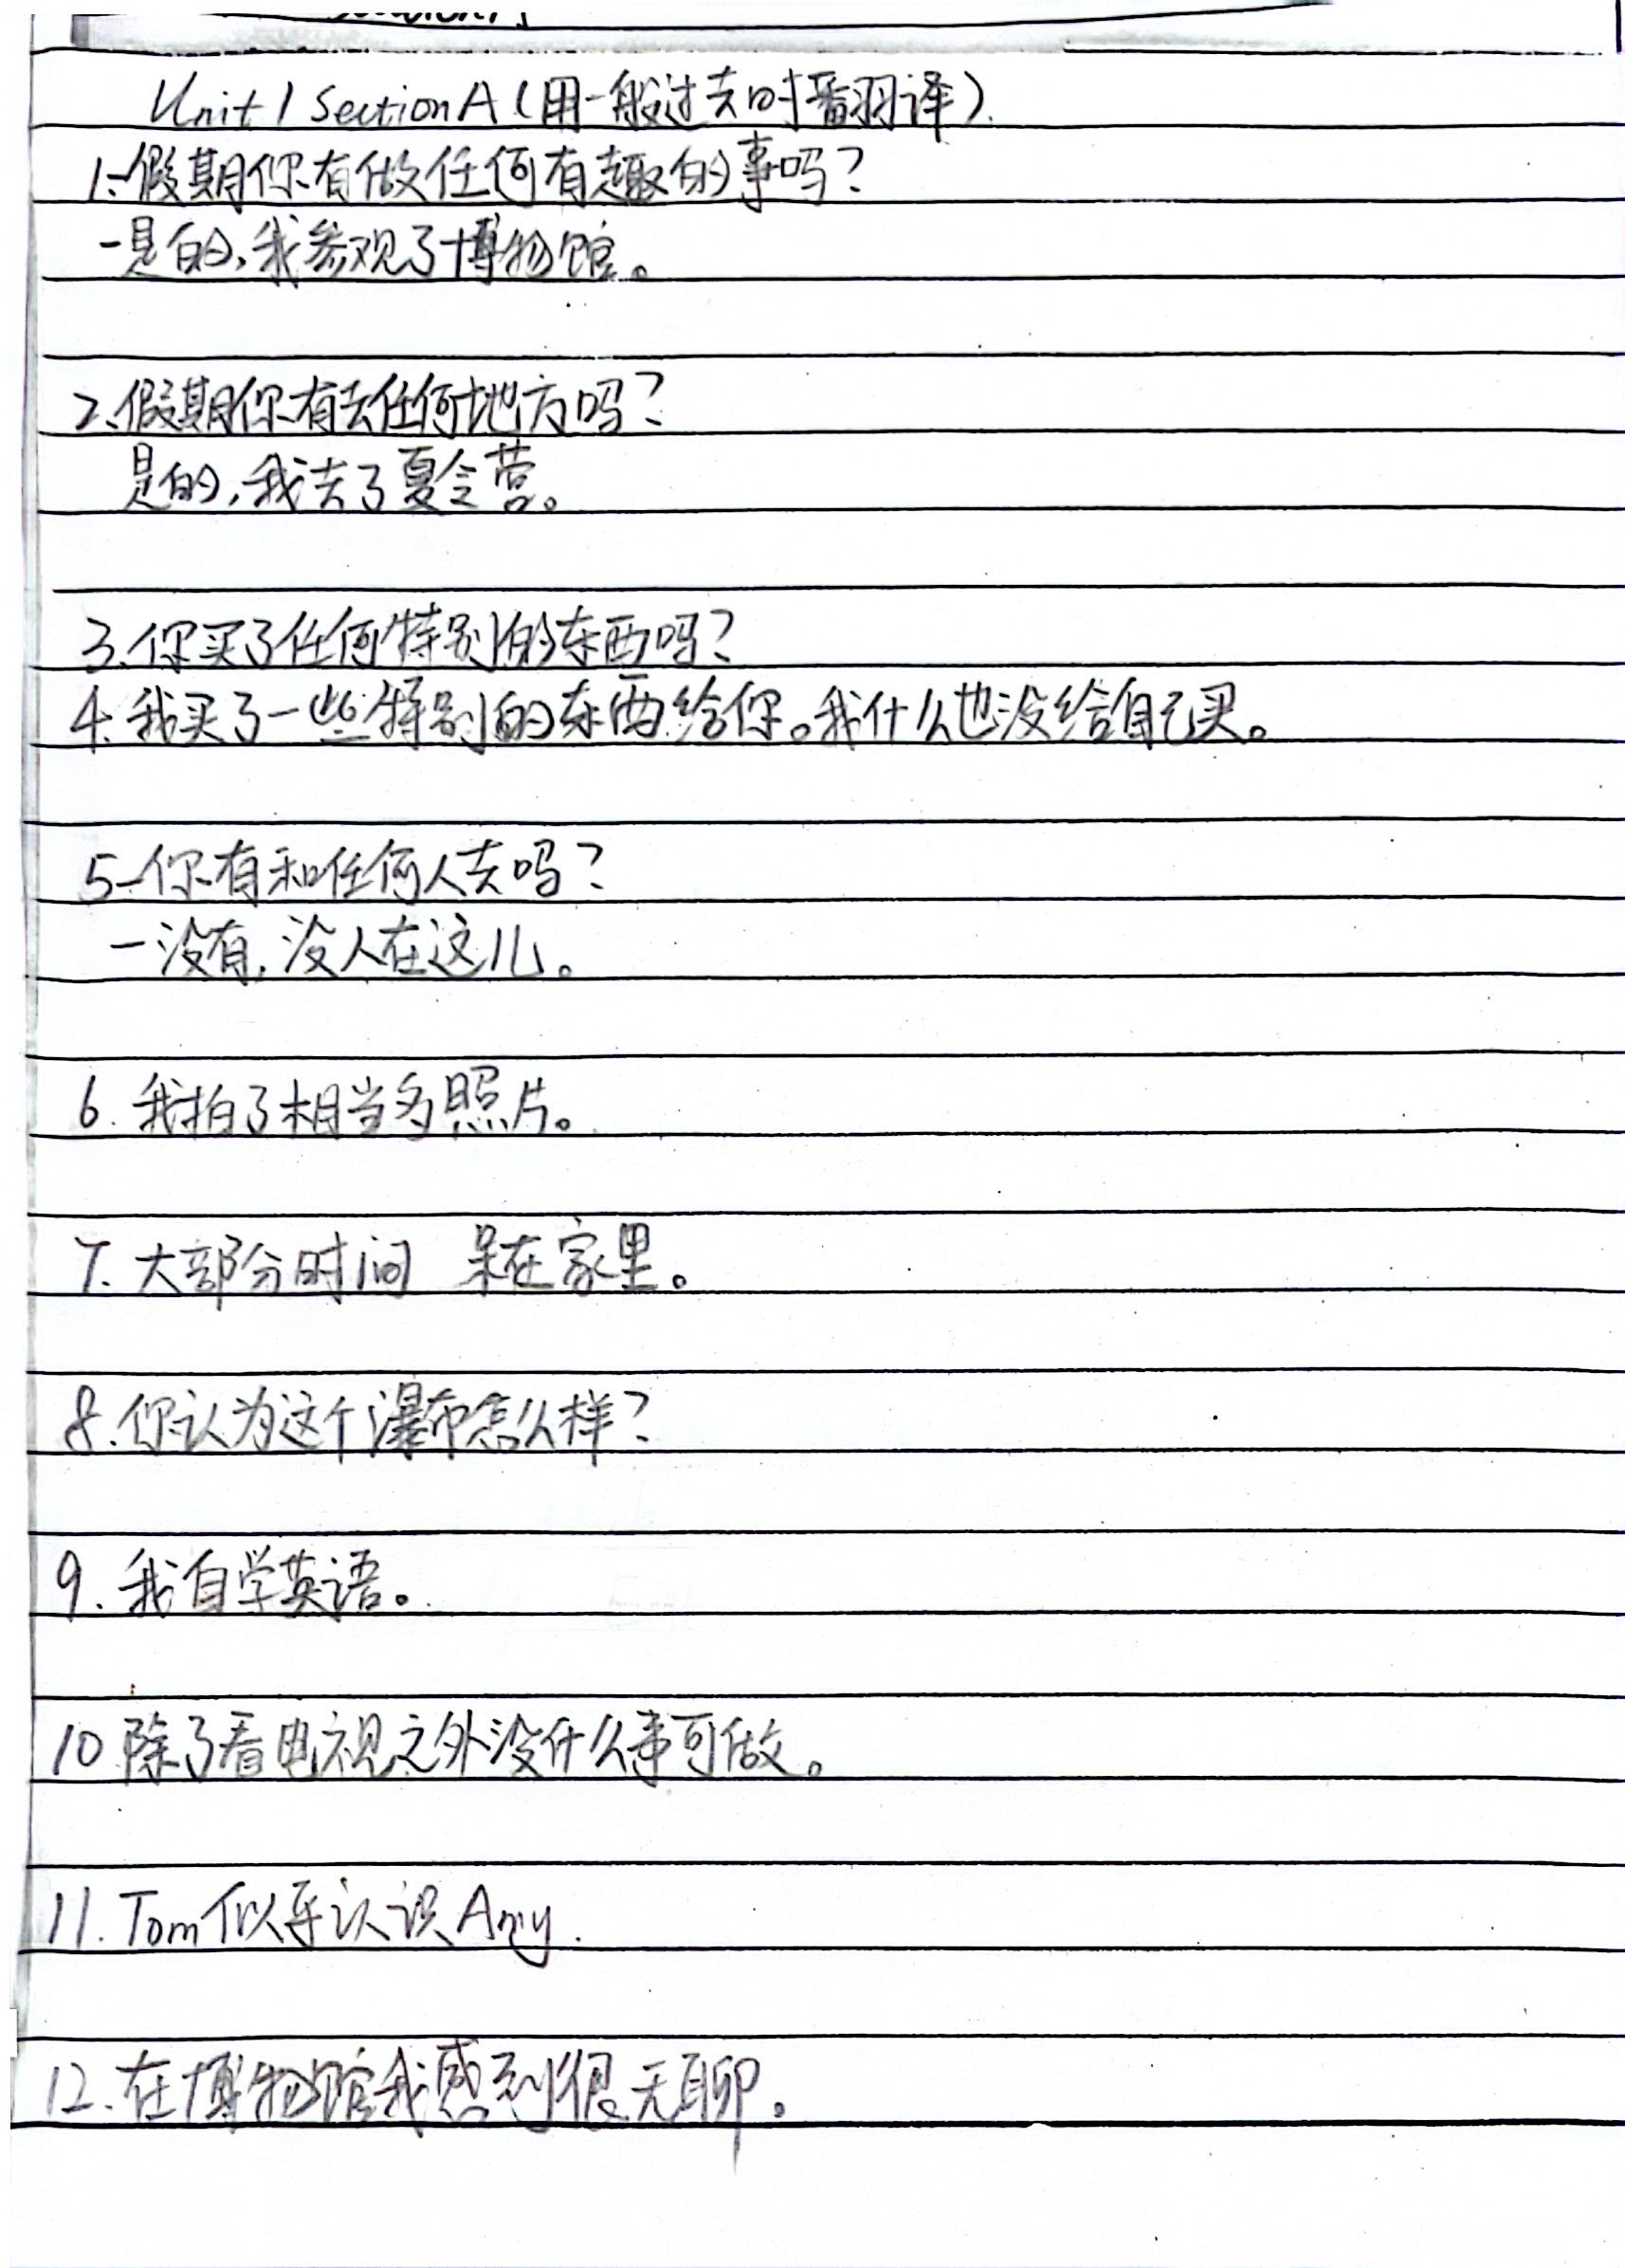 Unit 1 Section A (用一般过去时翻译).
1.-假期你有做任何有趣的事吗?
-是的,我参观了博物馆。
2.假期你有去任何地方吗?
是的,我去了夏令营。
3.你买了任何特别的东西吗?
4.我买了一些特别的东西给你。我什么也没给自己买。
5-你有和任何人去吗?
-没有,没人在这儿。
6.我拍了相当多照片。
7.大部分时间 呆在家里。
8.你认为这个瀑布怎么样?
9.我自学英语。
10 除了看电视之外没什么事可做。
11.Tom似乎认识Amy.
12.在博物馆我感到很无聊。